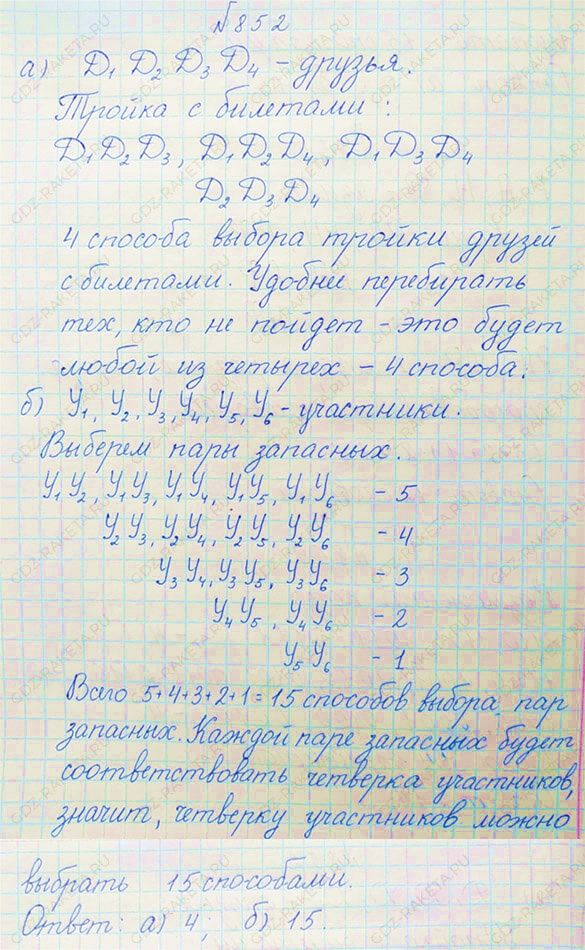 №852
а) Д₁ Д₂ Д₃ Д₄ – друзья.
Тройка с билетами:
Д₁Д₂Д₃, Д₁Д₂Д₄, Д₁Д₃Д₄
Д₂Д₃Д₄
4 способа выбора тройки друзей
с билетами. Удобней перебирать
тех, кто не пойдет – это будет
любой из четырех – 4 способа.
б) У₁, У₂, У₃, У₄, У₅, У₆ – участники.
Выберем пары запасных.
У₁У₂, У₁У₃, У₁У₄, У₁У₅, У₁У₆ – 5
У₂У₃, У₂У₄, У₂У₅, У₂У₆ – 4
У₃У₄, У₃У₅, У₃У₆ – 3
У₄У₅, У₄У₆ – 2
У₅У₆ – 1
Всего 5+4+3+2+1=15 способов выбора пар
запасных. Каждой паре запасных будет
соответствовать четверка участников,
значит, четверку участников можно
выбрать 15 способами.
Ответ: а) 4; б) 15.